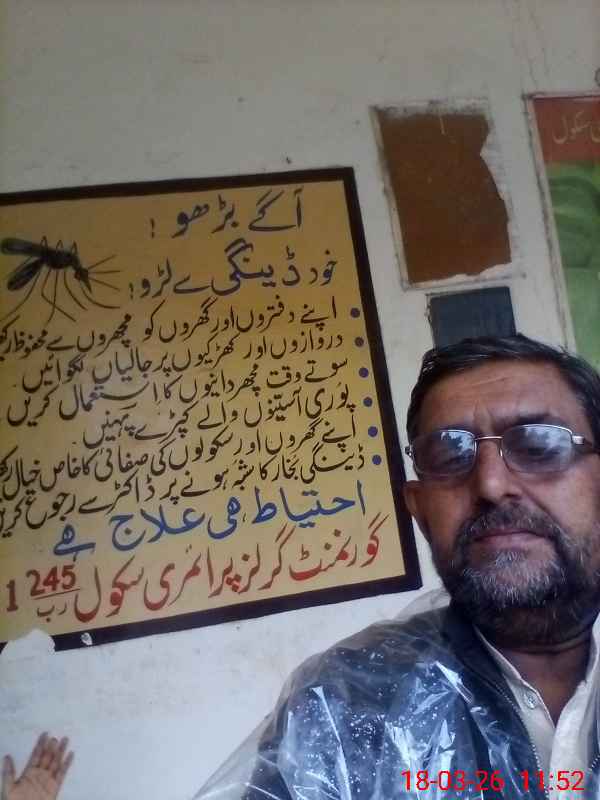 آگے بڑھو !
خود ڈینگی سے لڑو !
• اپنے دفتروں اور گھروں کو مچھروں سے محفوظ
• دروازوں اور کھڑکیوں پر جالیاں لگوائیں
• سوتے وقت مچھردانیوں کا استعمال کریں
• پوری آستینوں والے کپڑے پہنیں
• اپنے گھروں اور سکولوں کی صفائی کا خاص خیال
• ڈینگی بخار کا شبہ ہونے پر ڈاکٹر سے رجوع کریں
احتیاط ہی علاج ہے
گورنمنٹ گرلز پرائمری سکول 245 رب 1
سکول
18-03-26 11:52